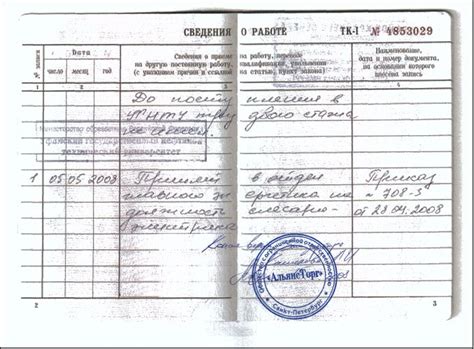 СВЕДЕНИЯ О РАБОТЕ
ТК-I № 4853029
№ записи
Дата
число
месяц
год
Сведения о приеме на работу, переводе
на другую постоянную работу, квалификации, увольнении
(с указанием причин и ссылкой на статью, пункт закона)
Наименование,
дата и номер документа,
на основании которого
внесена запись
1
2
3
4
До поступления в
УГНТУ трудового стажа
не имел.
технический университет
1 05 05 2008 Принят в отдел Приказ
главного энергетика на № 708-3
должность слесарь- от 28.04.2008
электрика
«АльянсТорг»
Санкт-Петербург
2
3